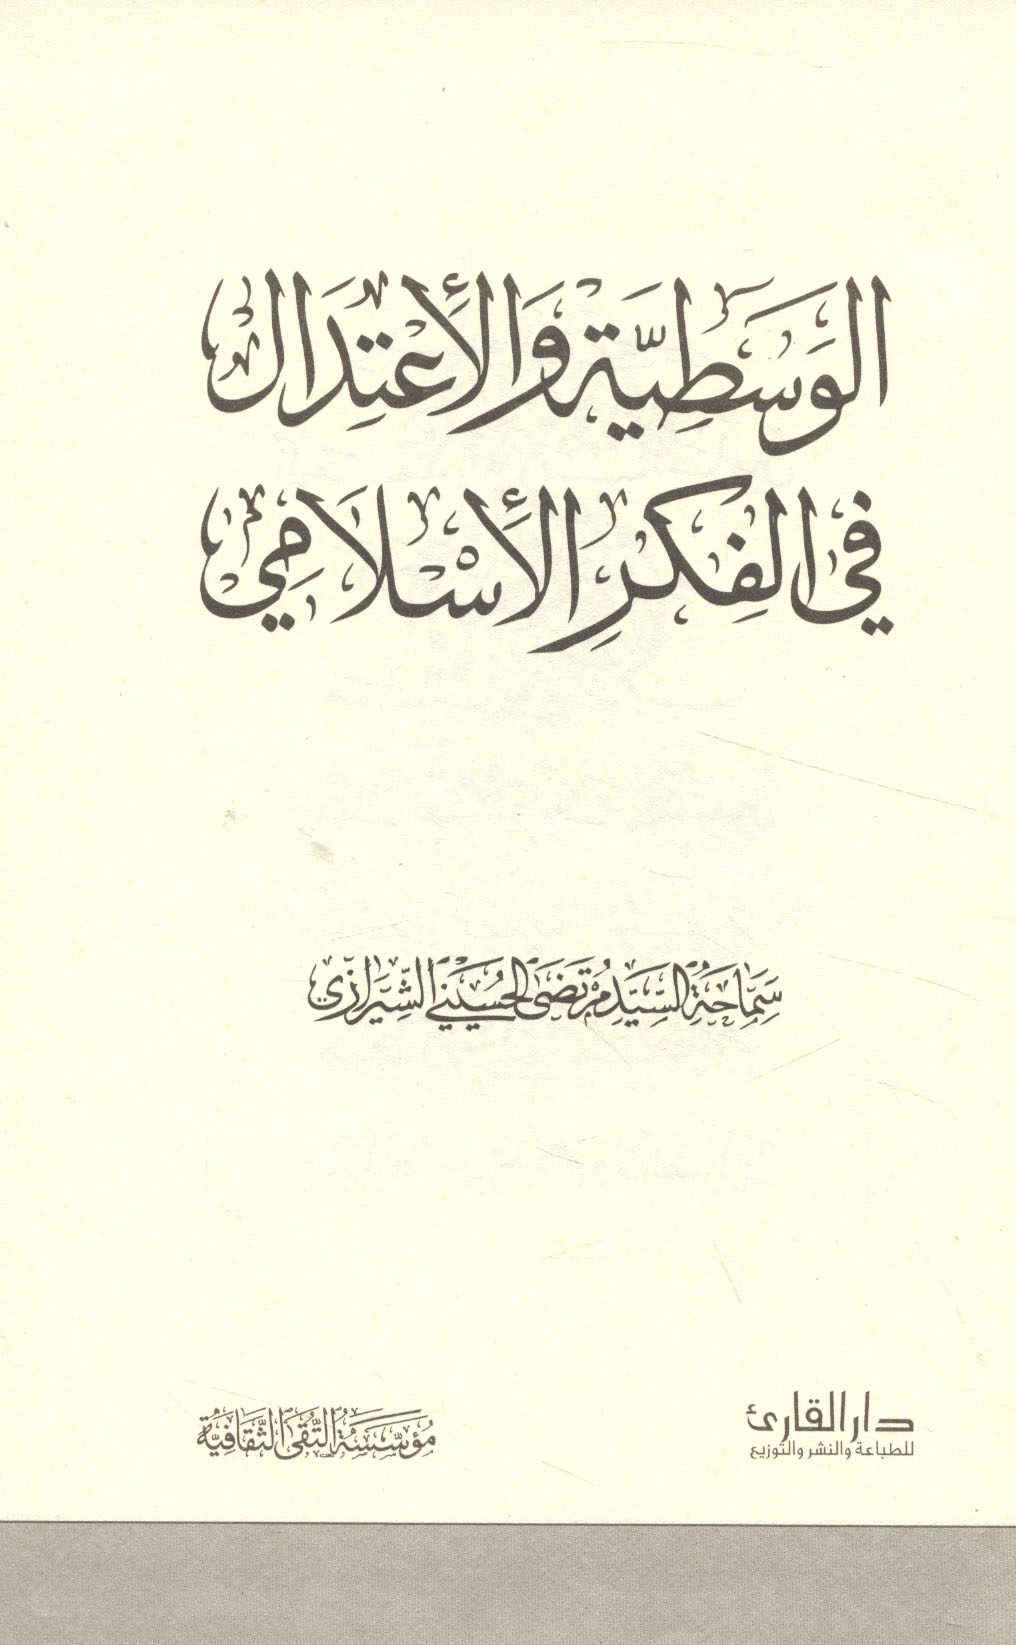 الوَسَطِيّة وَالأَعْتِدَال
في الفِكرِ الأَسْلَامِي
سَمَاحَةُ السَّيِّد مُرتَضَى الحُسَيني الشِّيرَازي
دار القارئ
للطباعة والنشر والتوزيع
مُؤسَّسَةُ التُّقَى الثَّقَافِيَّة